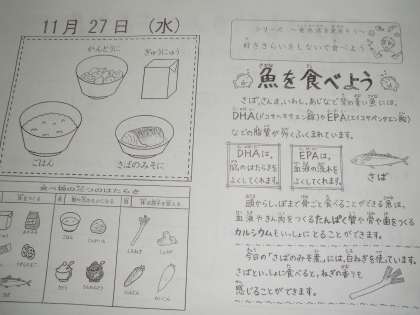 11月 27日 (水)
かんとうに
ぎゅうにゅう
ごはん
さばのみそに
食べ物の三つのはたらき
ごはん
さとう
にんじん
だいこん
好ききらいをしないで食べよう
魚を食べよう
さば、さんま、いわし、あじなど背の青い魚には、
DHA(ドコサヘキサエン酸)やEPA(エイコサペンタエン酸)
などの脂質が多くふくまれています。
DHAは、
脳のはたらきを
よくしてくれます。
EPAは、
血液の流れを
よくしてくれます。
さば
頭からしっぽまで骨ごと食べることができる魚は、
血液やきん肉をつくるたんぱく質や骨や歯をつくる
カルシウムもいっしょにとることができます。
今日の「さばのみそ煮」には、白ねぎを使っています。
さばといっしょに食べると、ねぎの香りも
感じることができます。